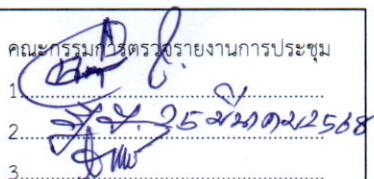 คณะกรรมการตรวจรายงานการประชุม
1.......................................................
2.......................................................
25 มีนาคม 2568
3.......................................................